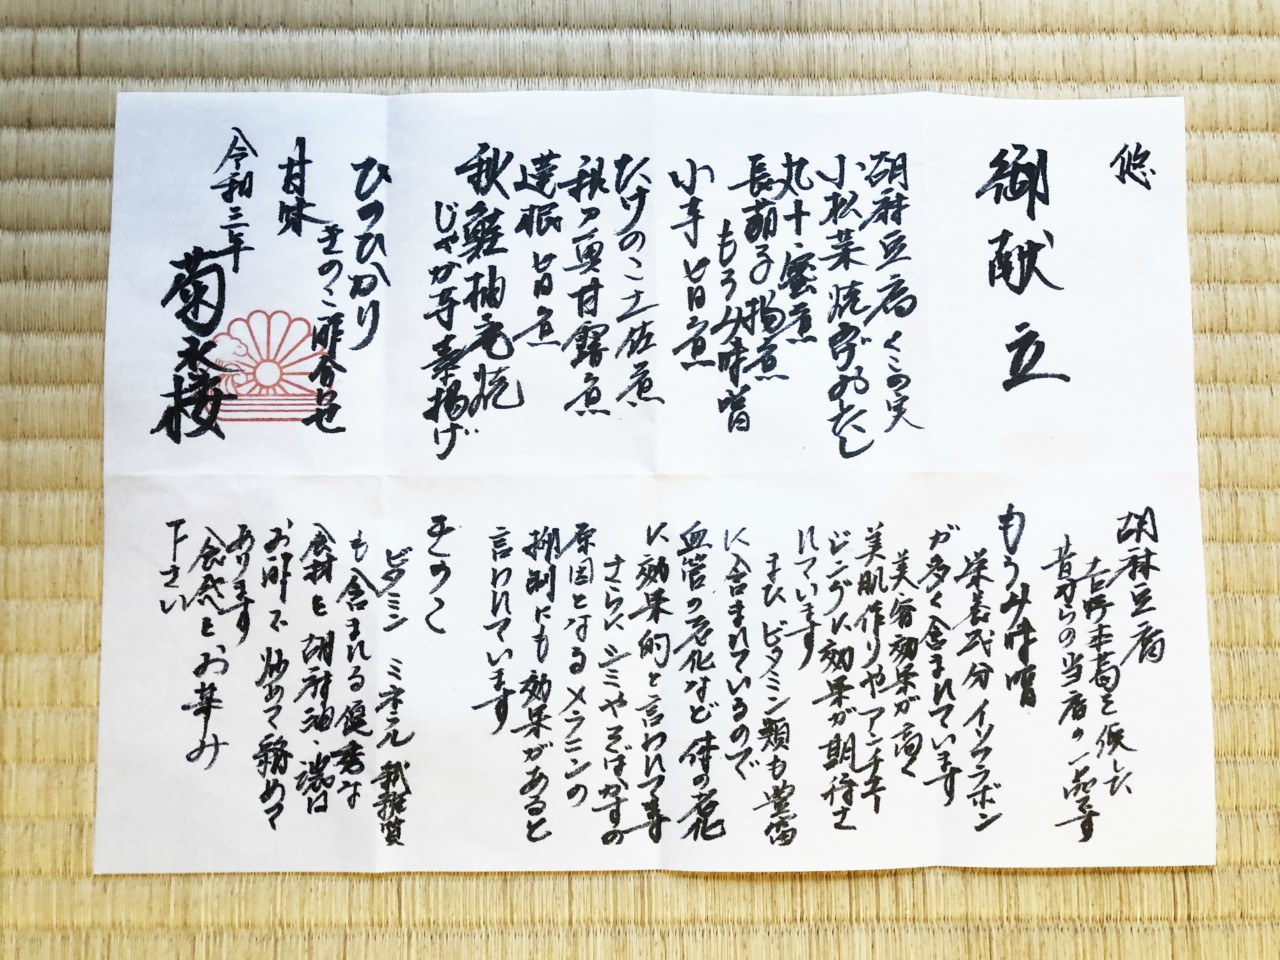 悠
御献立
胡麻豆腐 くこの実
小松菜焼
丸十蜜煮
長萌子揚煮
もろみ味噌
小芋旨煮
たけのこ土佐煮
秋刀魚甘露煮
蓮根旨煮
秋鮭柚庵焼
じゃが芋素揚げ
ひのひかり
きのこ 酢合わせ
甘味
令和三年
菊水楼
胡麻豆腐
を使した
昔からの当店の一品です
もろみ味噌
栄養成分イソフラボン
が多く含まれています
美容効果が高く
美肌作りやアンチエー
ジングに効果が期待さ
れています
またビタミン類も豊富
に含まれているので
血管の老化など体の老化
に効果的と言われて
さらにシミやそばかすの
原因となるメラニンの
抑制にも効果があると
言われています
きのこ
ビタミン ミネラル 繊維質
も含まれる優秀な
食材を胡麻油
お酢で炒めて
あります
お楽しみ
下さい